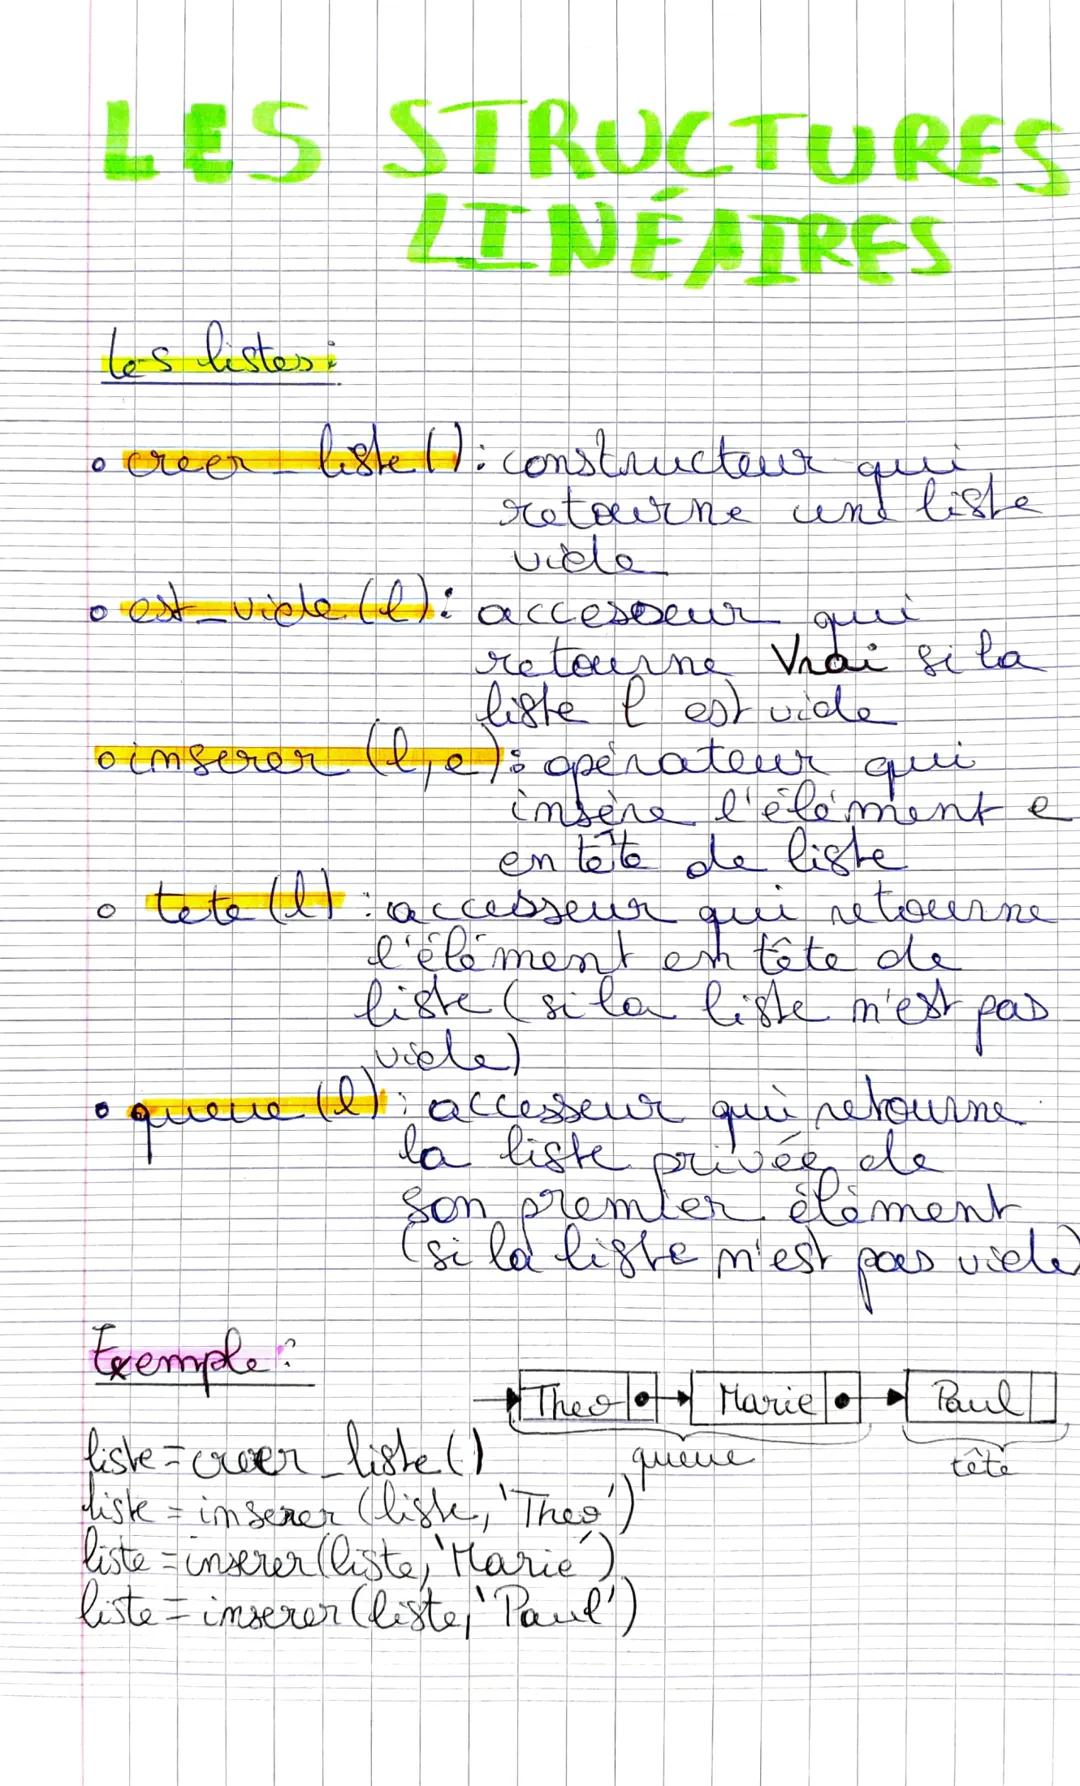 LES STRUCTURES
LINÉAIRES
Les listes :
creer_liste() : constructeur qui
retourne une liste
vide
est_vide(l) : accesseur qui
retourne Vrai si la
liste l est vide
inserer (l, e) : opérateur qui
insère l'élément e
en tête de liste
tete (l) : accesseur qui retourne
l'élément en tête de
liste (si la liste n'est pas
vide)
queue (l) : accesseur qui retourne
la liste privée de
son premier élément
(si la liste n'est pas vide)
Exemple :
Theo Marie Paul
queue tête
liste = creer_liste()
liste = inserer (liste, 'Theo')
liste = inserer(liste, 'Marie')
liste = inserer(liste, 'Paul')